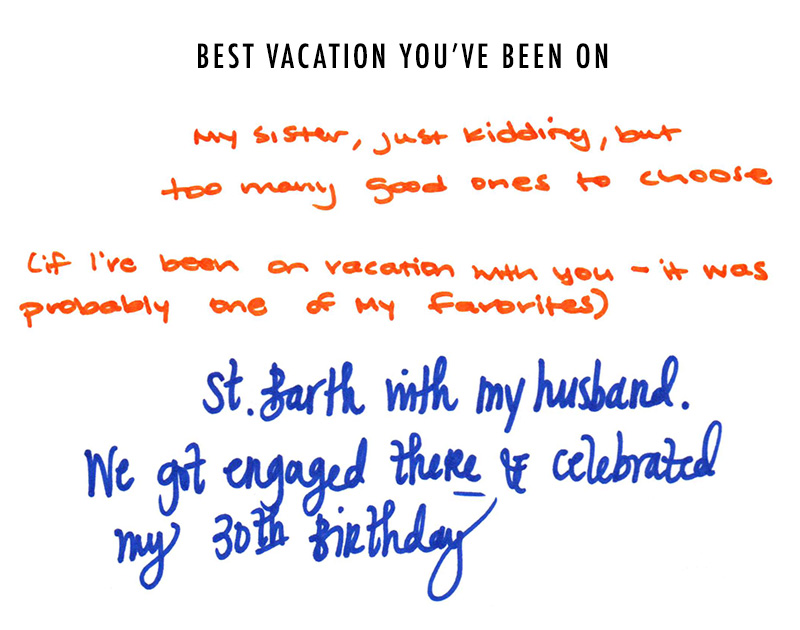 BEST VACATION YOU'VE BEEN ON
My sister, just kidding, but
too many good ones to choose
(if I've been on vacation with you - it was
probably one of my favorites)
St. Barth with my husband.
We got engaged there & celebrated
my 30th Birthday